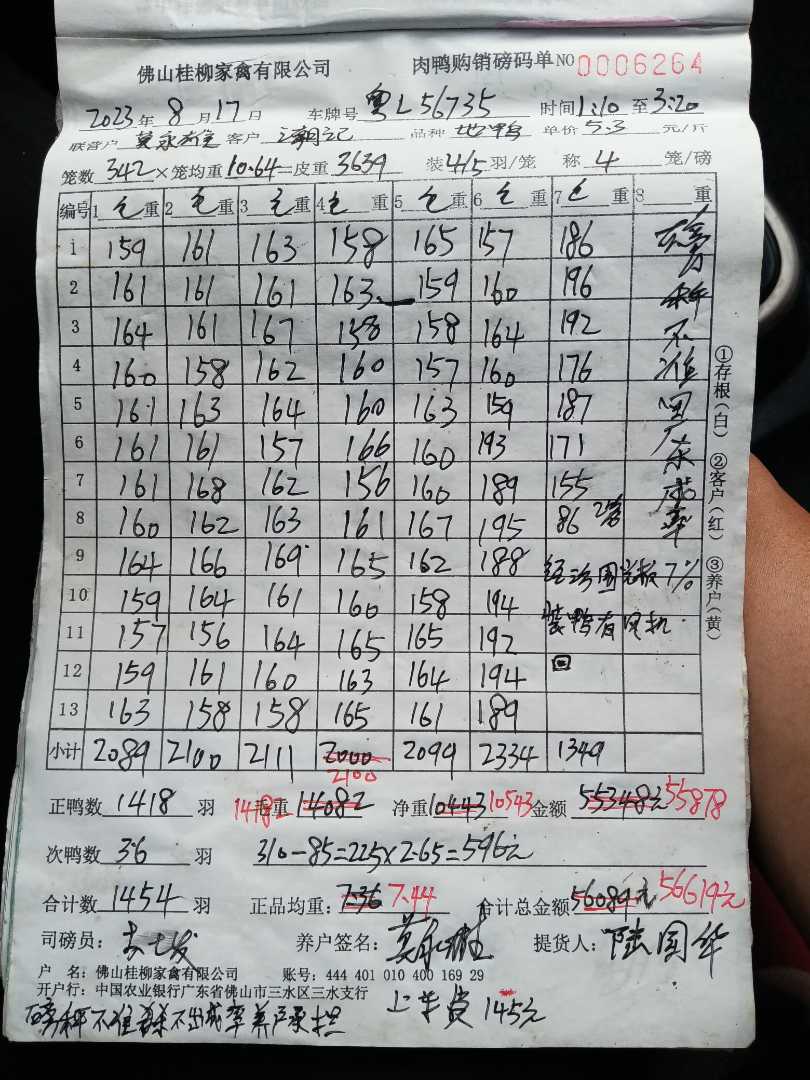 佛山桂柳家禽有限公司 肉鸭购销磅码单 NO 0006264
2023年 8月17日 车牌号 粤L56735 时间 1:10 至 3:20
联营户 莫永雄 客户 潮记 品种 地鸭 单价 5.3 元/斤
笼数 342 ×笼均重 10.64 =皮重 3639 装 4/5 羽/笼 称 4 笼/磅
编号 1 毛重 2 毛重 3 毛重 4 毛重 5 毛重 6 毛重 7 毛重 8 重
1 159 161 163 158 165 157 186 磅
2 161 161 161 163 159 160 196 秤
3 164 161 167 158 158 164 192 不
4 160 158 162 160 157 160 176 准
5 161 163 164 160 163 159 187
6 161 161 157 166 160 193 171
7 161 168 162 156 160 189 155 成
8 160 162 163 161 167 195 86 2笼 率
9 164 166 169 165 162 188
10 159 164 161 160 158 194 7%
11 157 156 164 165 165 192 装鸭有风机
12 159 161 160 163 164 194 回
13 163 158 158 165 161 189
小计 2089 2100 2111 2000 2100 2099 2334 1349
正鸭数 1418 羽 毛重 14082 14182 净重 10443 10543 金额 55348元 55878
次鸭数 36 羽 310-85=225×2.65=596元
合计数 1454 羽 正品均重: 7.36 7.44 合计总金额 56084元 56619元
司磅员: 养户签名: 莫永雄 提货人: 陆国华
户 名: 佛山桂柳家禽有限公司 账号: 444 401 010 400 169 29
开户行: 中国农业银行广东省佛山市三水区三水支行
上车费 145元
磅秤不准 杀不出成率养户承担
①存根(白) ②客户(红) ③养户(黄)